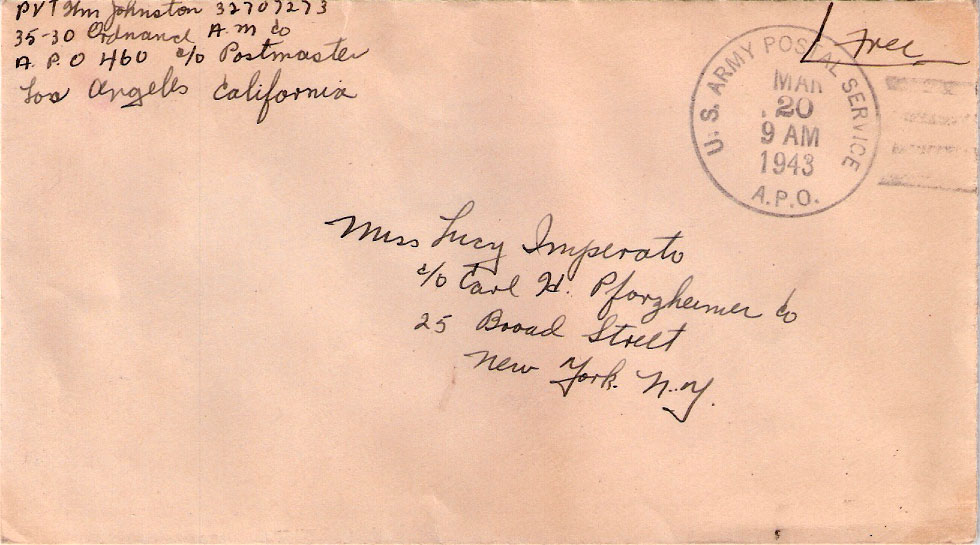 PVT Wm Johnston 32707273
35-30 Ordnance A.M Co
A.P.O 460 c/o Postmaster
Los Angeles California
Free
U.S. ARMY POSTAL SERVICE
MAR
20
9 AM
1943
A.P.O.
Miss Lucy Imperato
c/o Carl H. Pforzheimer Co
25 Broad Street
New York. N.Y.